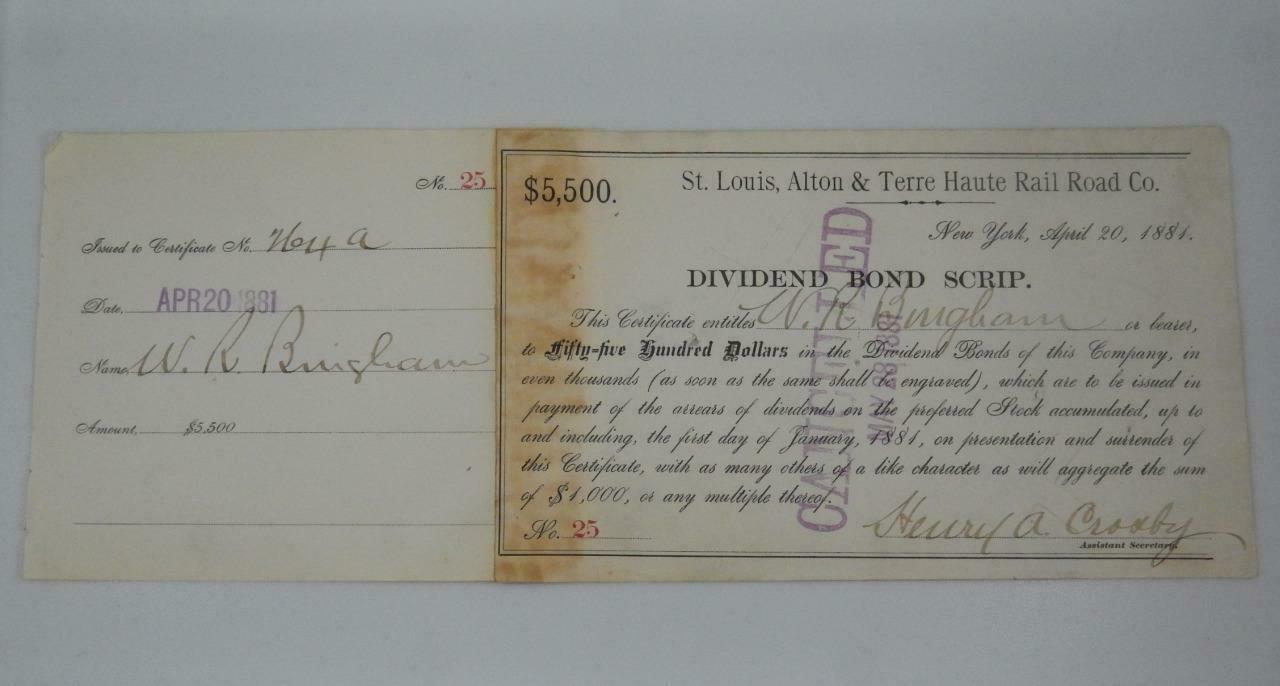 No. 25
Issued to Certificate No. A
Date, APR 20 1881
Name, W. R. Bingham
Amount, $5,500
$5,500.
St. Louis, Alton & Terre Haute Rail Road Co.
New York, April 20, 1881.
DIVIDEND BOND SCRIP.
This Certificate entitles W. R. Bingham or bearer,
to Fifty-five Hundred Dollars in the Dividend Bonds of this Company, in
even thousands (as soon as the same shall be engraved), which are to be issued in
payment of the arrears of dividends on the preferred Stock accumulated, up to
and including, the first day of January, 1881, on presentation and surrender of
this Certificate, with as many others of a like character as will aggregate the sum
of $1,000, or any multiple thereof.
No. 25
Henry A. Crosby
Assistant Secretary.
CANCELLED
MAY 28 1881